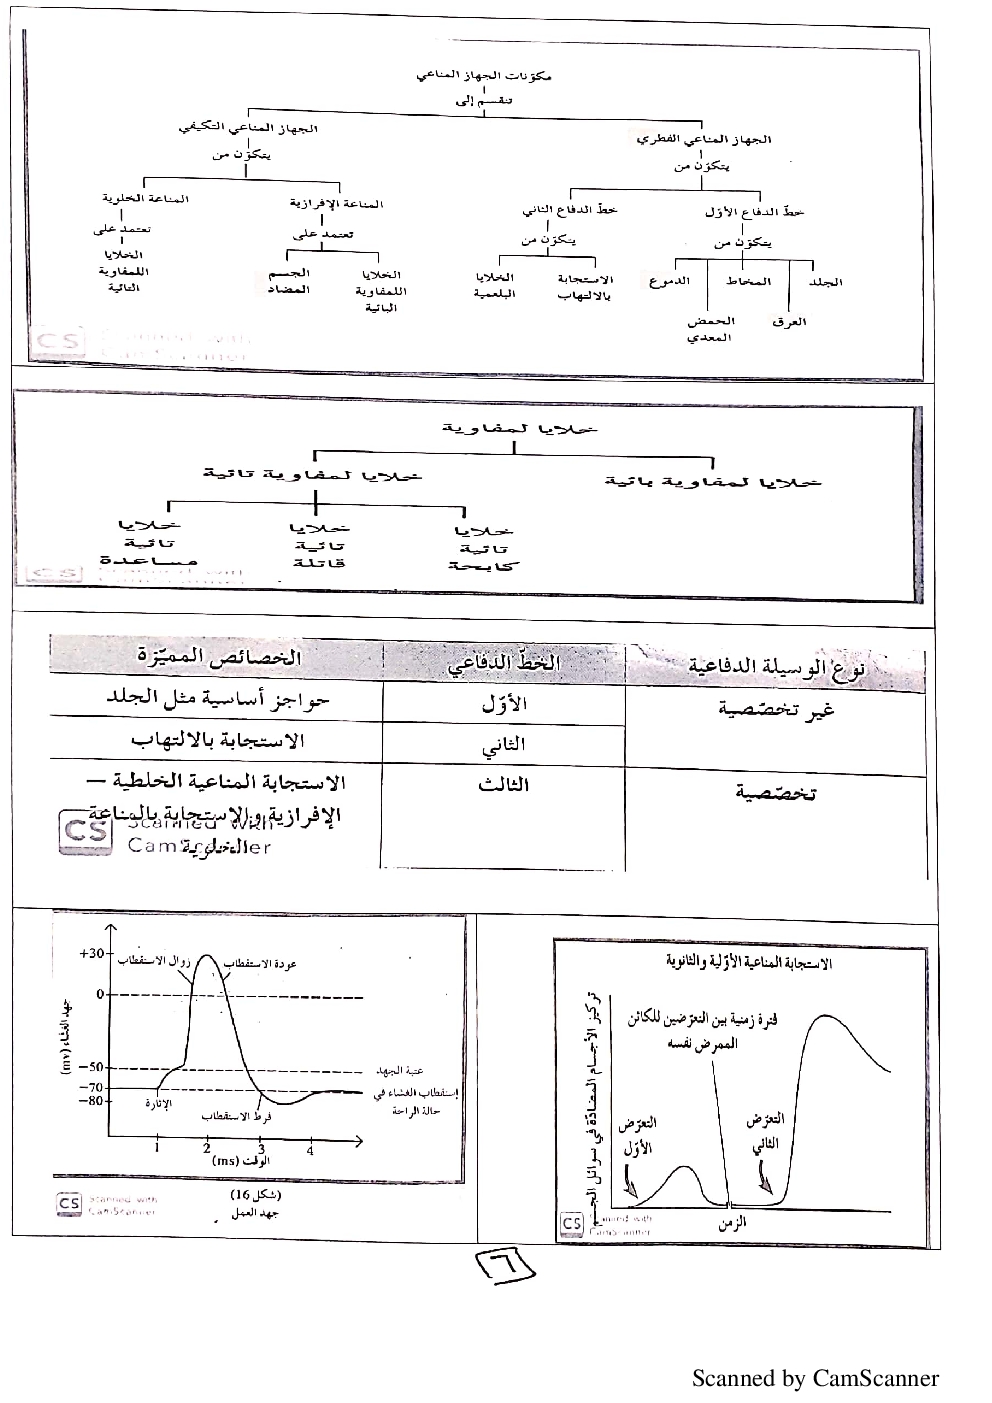 مكوّنات الجهاز المناعي
تنقسم إلى
الجهاز المناعي الفطري
الجهاز المناعي التكيفي
يتكوّن من
يتكوّن من
خطّ الدفاع الأوّل
خطّ الدفاع الثاني
المناعة الإفرازية
المناعة الخلوية
يتكوّن من
يتكوّن من
تعتمد على
تعتمد على
الجلد
العرق
المخاط
الحمض المعدي
الدموع
الاستجابة بالالتهاب
الخلايا البلعمية
الخلايا اللمفاوية البائية
الجسم المضاد
الخلايا اللمفاوية التائية
CS
خلايا لمفاوية
خلايا لمفاوية بائية
خلايا لمفاوية تائية
خلايا تائية كابحة
خلايا تائية قاتلة
خلايا تائية مساعدة
CS
نوع الوسيلة الدفاعية
الخطّ الدفاعي
الخصائص المميّزة
غير تخصّصية
الأوّل
حواجز أساسية مثل الجلد
الثاني
الاستجابة بالالتهاب
تخصّصية
الثالث
الاستجابة المناعية الخلطية –
الإفرازية والاستجابة بالمناعة
الخلوية
CS Scanned with
CamScanner
الاستجابة المناعية الأوّلية والثانوية
تركيز الأجسام المضادّة في سوائل
فترة زمنية بين التعرّضين للكائن
الممرض نفسه
التعرّض الأوّل
التعرّض الثاني
الزمن
CS Scanned with
CamScanner
جهد الغشاء (mv)
+30
0
−50
−70
−80
زوال الاستقطاب
عودة الاستقطاب
عتبة الجهد
إستقطاب الغشاء في
حالة الراحة
الإثارة
فرط الاستقطاب
1 2 3 4
الوقت (ms)
(شكل 16)
جهد العمل
CS Scanned with
CamScanner
٦
Scanned by CamScanner